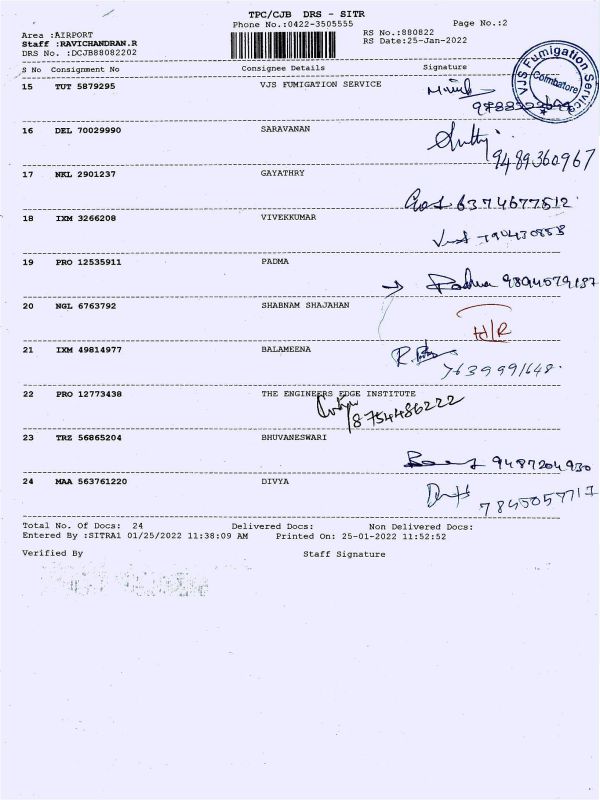 TPC/CJB DRS - SITR
Phone No.:0422-3505555 Page No.:2
Area :AIRPORT RS No.:880822
Staff :RAVICHANDRAN.R RS Date:25-Jan-2022
DRS No. :DCJB88082202
S No Consignment No Consignee Details Signature
VJS Fumigation Service
Coimbatore
15 TUT 5879295 VJS FUMIGATION SERVICE
16 DEL 70029990 SARAVANAN
9489360967
17 NKL 2901237 GAYATHRY
6374677512
18 IXM 3266208 VIVEKKUMAR
19 PRO 12535911 PADMA
Padma 9894579187
20 NGL 6763792 SHABNAM SHAJAHAN
H/R
21 IXM 49814977 BALAMEENA
7639991648
22 PRO 12773438 THE ENGINEERS EDGE INSTITUTE
8754486222
23 TRZ 56865204 BHUVANESWARI
9487204930
24 MAA 563761220 DIVYA
7845057717
Total No. Of Docs: 24 Delivered Docs: Non Delivered Docs:
Entered By :SITRA1 01/25/2022 11:38:09 AM Printed On: 25-01-2022 11:52:52
Verified By Staff Signature